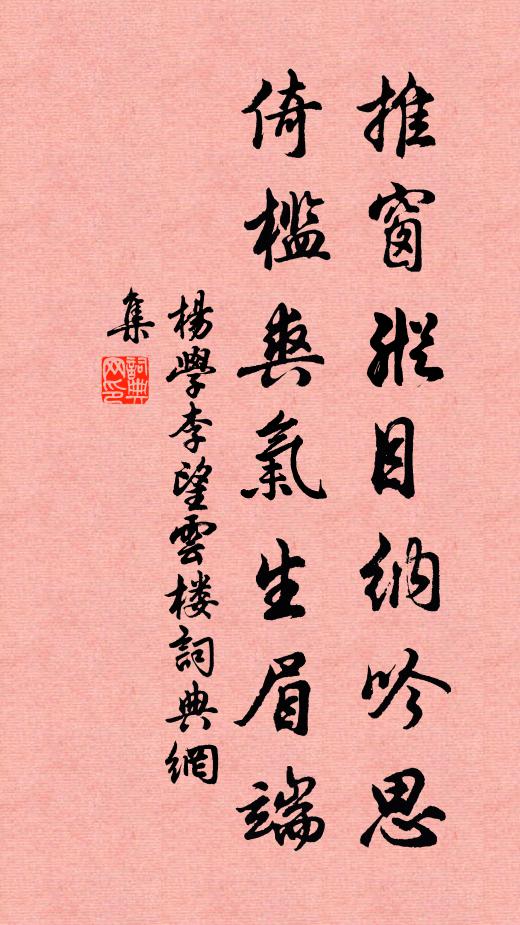 推窗縱目納吟思
倚檻爽氣生眉端
楊學李望雲楼詞典網
集
詞典网印